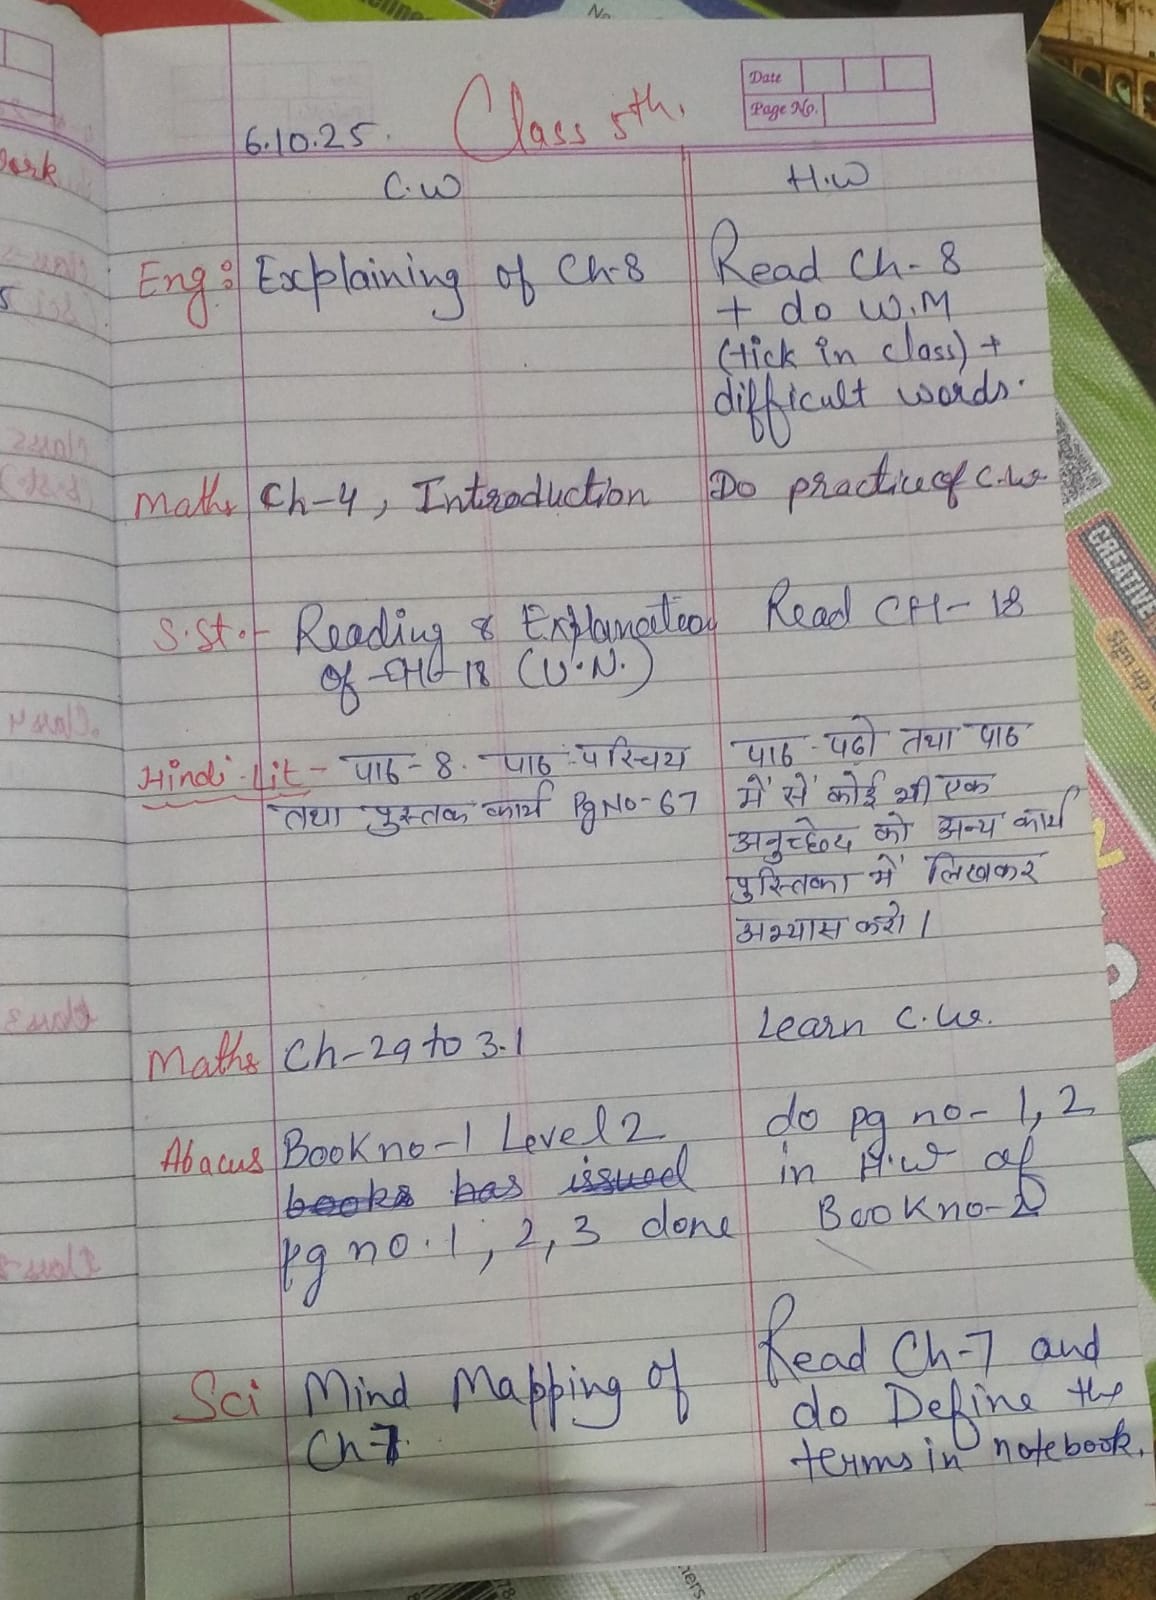 Date
Page No.
6.10.25. Class 5th.
C.W H.W
Eng: Explaining of Ch-8
Read Ch-8
+ do W.M
(tick in class) +
difficult words.
Maths Ch-4, Introduction
Do practice of C.W.
S.St.- Reading & Explanation
of CH-18 (U.N.)
Read CH-18
Hindi Lit - पाठ-8. पाठ-परिचय
तथा पुस्तक कार्य Pg No-67
पाठ पढो तथा पाठ
में से कोई भी एक
अनुच्छेद को अन्य कार्य
पुस्तिका में लिखकर
अभ्यास करो।
Maths Ch-29 to 3.1
Learn C.W.
Abacus Book no-1 Level 2
books has issued
pg no. 1, 2, 3 done
do pg no- 1, 2
in H.W of
Book no-2
Sci Mind Mapping of
Ch-7
Read Ch-7 and
do Define the
terms in notebook.
CREATIVE
Sign up